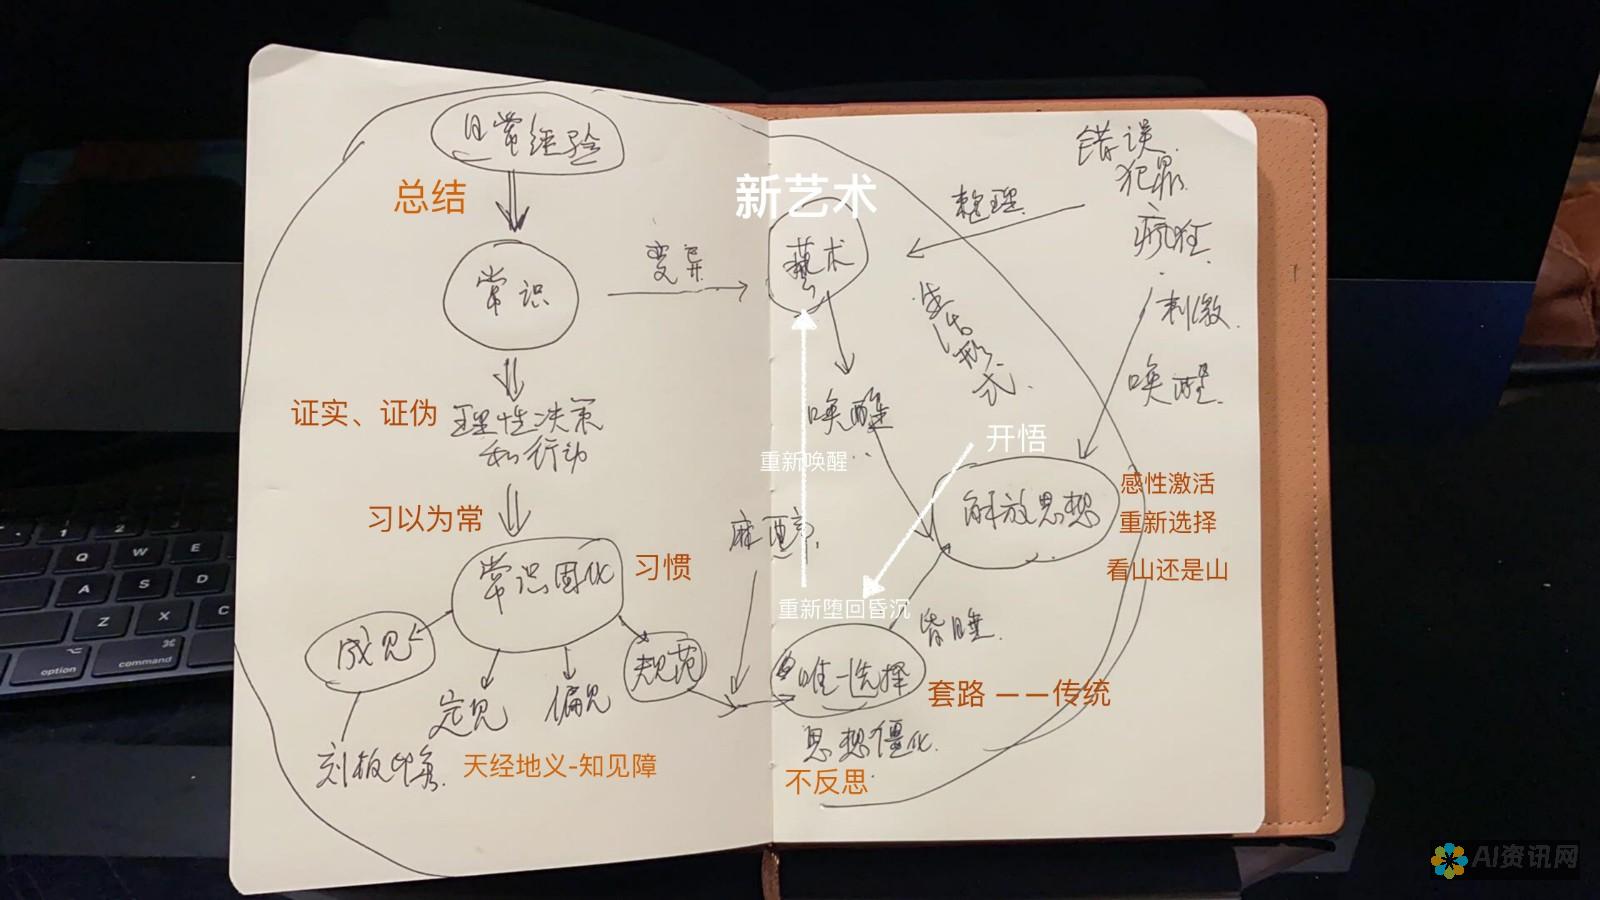 日常经验
总结
常识
变异
证实、证伪
理性决策
和行动
习以为常
常识固化
习惯
成见
定见
偏见
规范
刻板印象
天经地义-知见障
新艺术
艺术
整理
错误
犯罪
疯狂
刺激
唤醒
生活形式
唤醒
重新唤醒
开悟
解放思想
感性激活
重新选择
看山还是山
麻醉
重新堕回昏沉
昏睡
唯一选择
套路 ——传统
思想僵化
不反思
Q
W
E
A
S
D
Z
X
C
option
command
AI资讯网